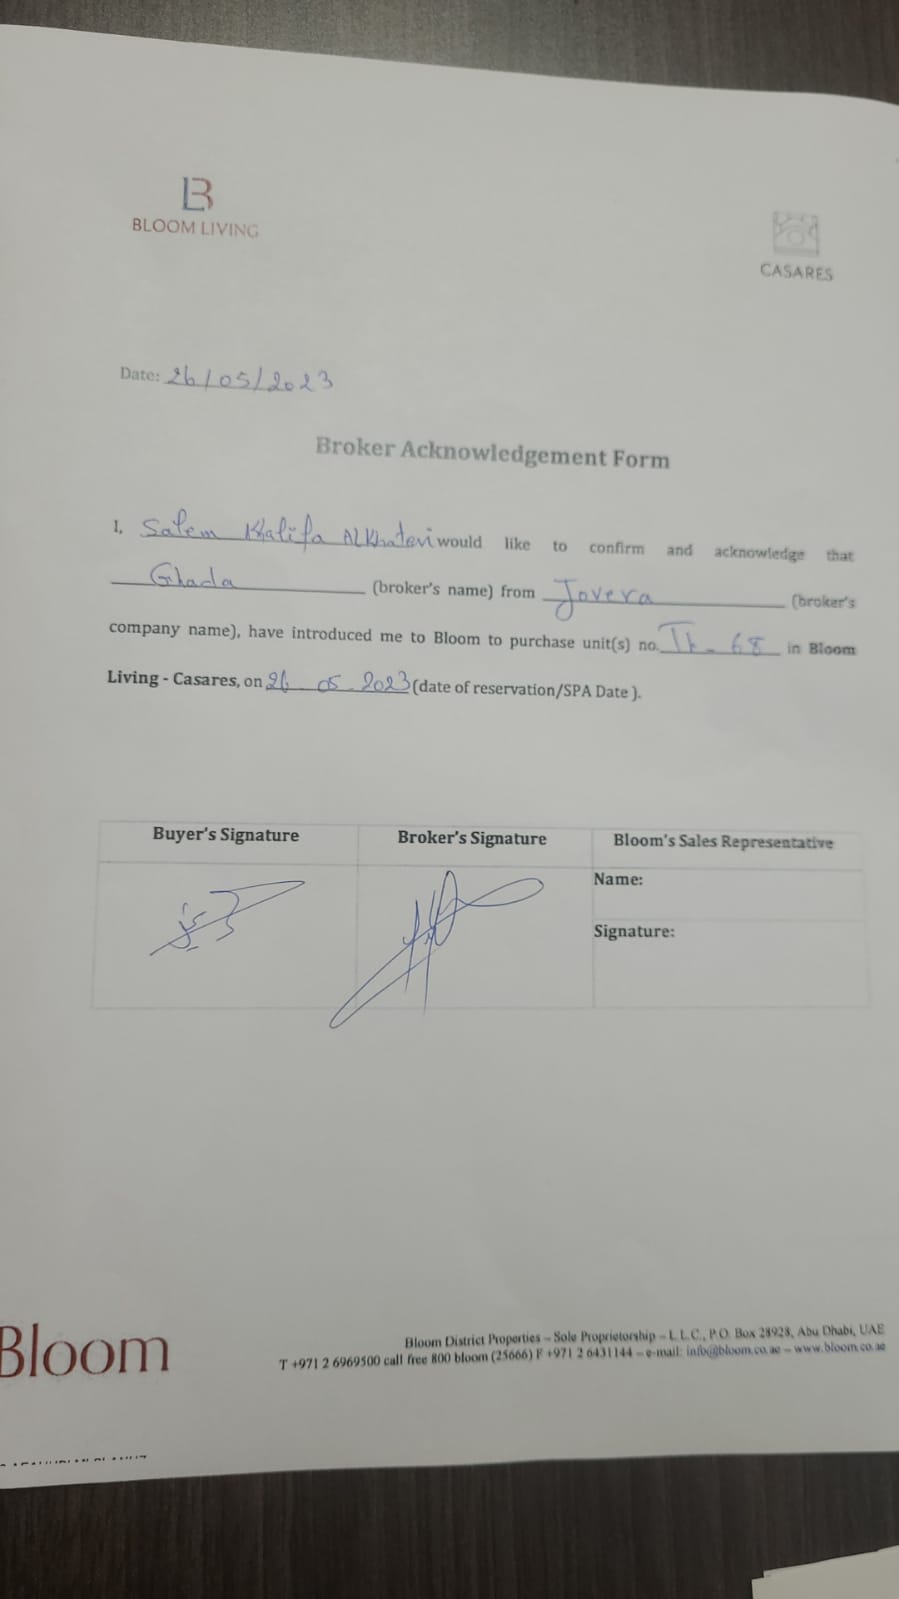 BLOOM LIVING
CASARES
Date: 26/05/2023
Broker Acknowledgement Form
I, Salem Khalifa ALKhateri would like to confirm and acknowledge that
Ghada (broker's name) from Jovera (broker's
company name), have introduced me to Bloom to purchase unit(s) no. Th - 68 in Bloom
Living - Casares, on 26 . 05 . 2023 (date of reservation/SPA Date ).
Buyer's Signature Broker's Signature Bloom's Sales Representative
Name:
Signature:
Bloom
Bloom District Properties – Sole Proprietorship – L.L.C., P.O. Box 28928, Abu Dhabi, UAE
T +971 2 6969500 call free 800 bloom (25666) F +971 2 6431144 – e-mail: info@bloom.co.ae – www.bloom.co.ae